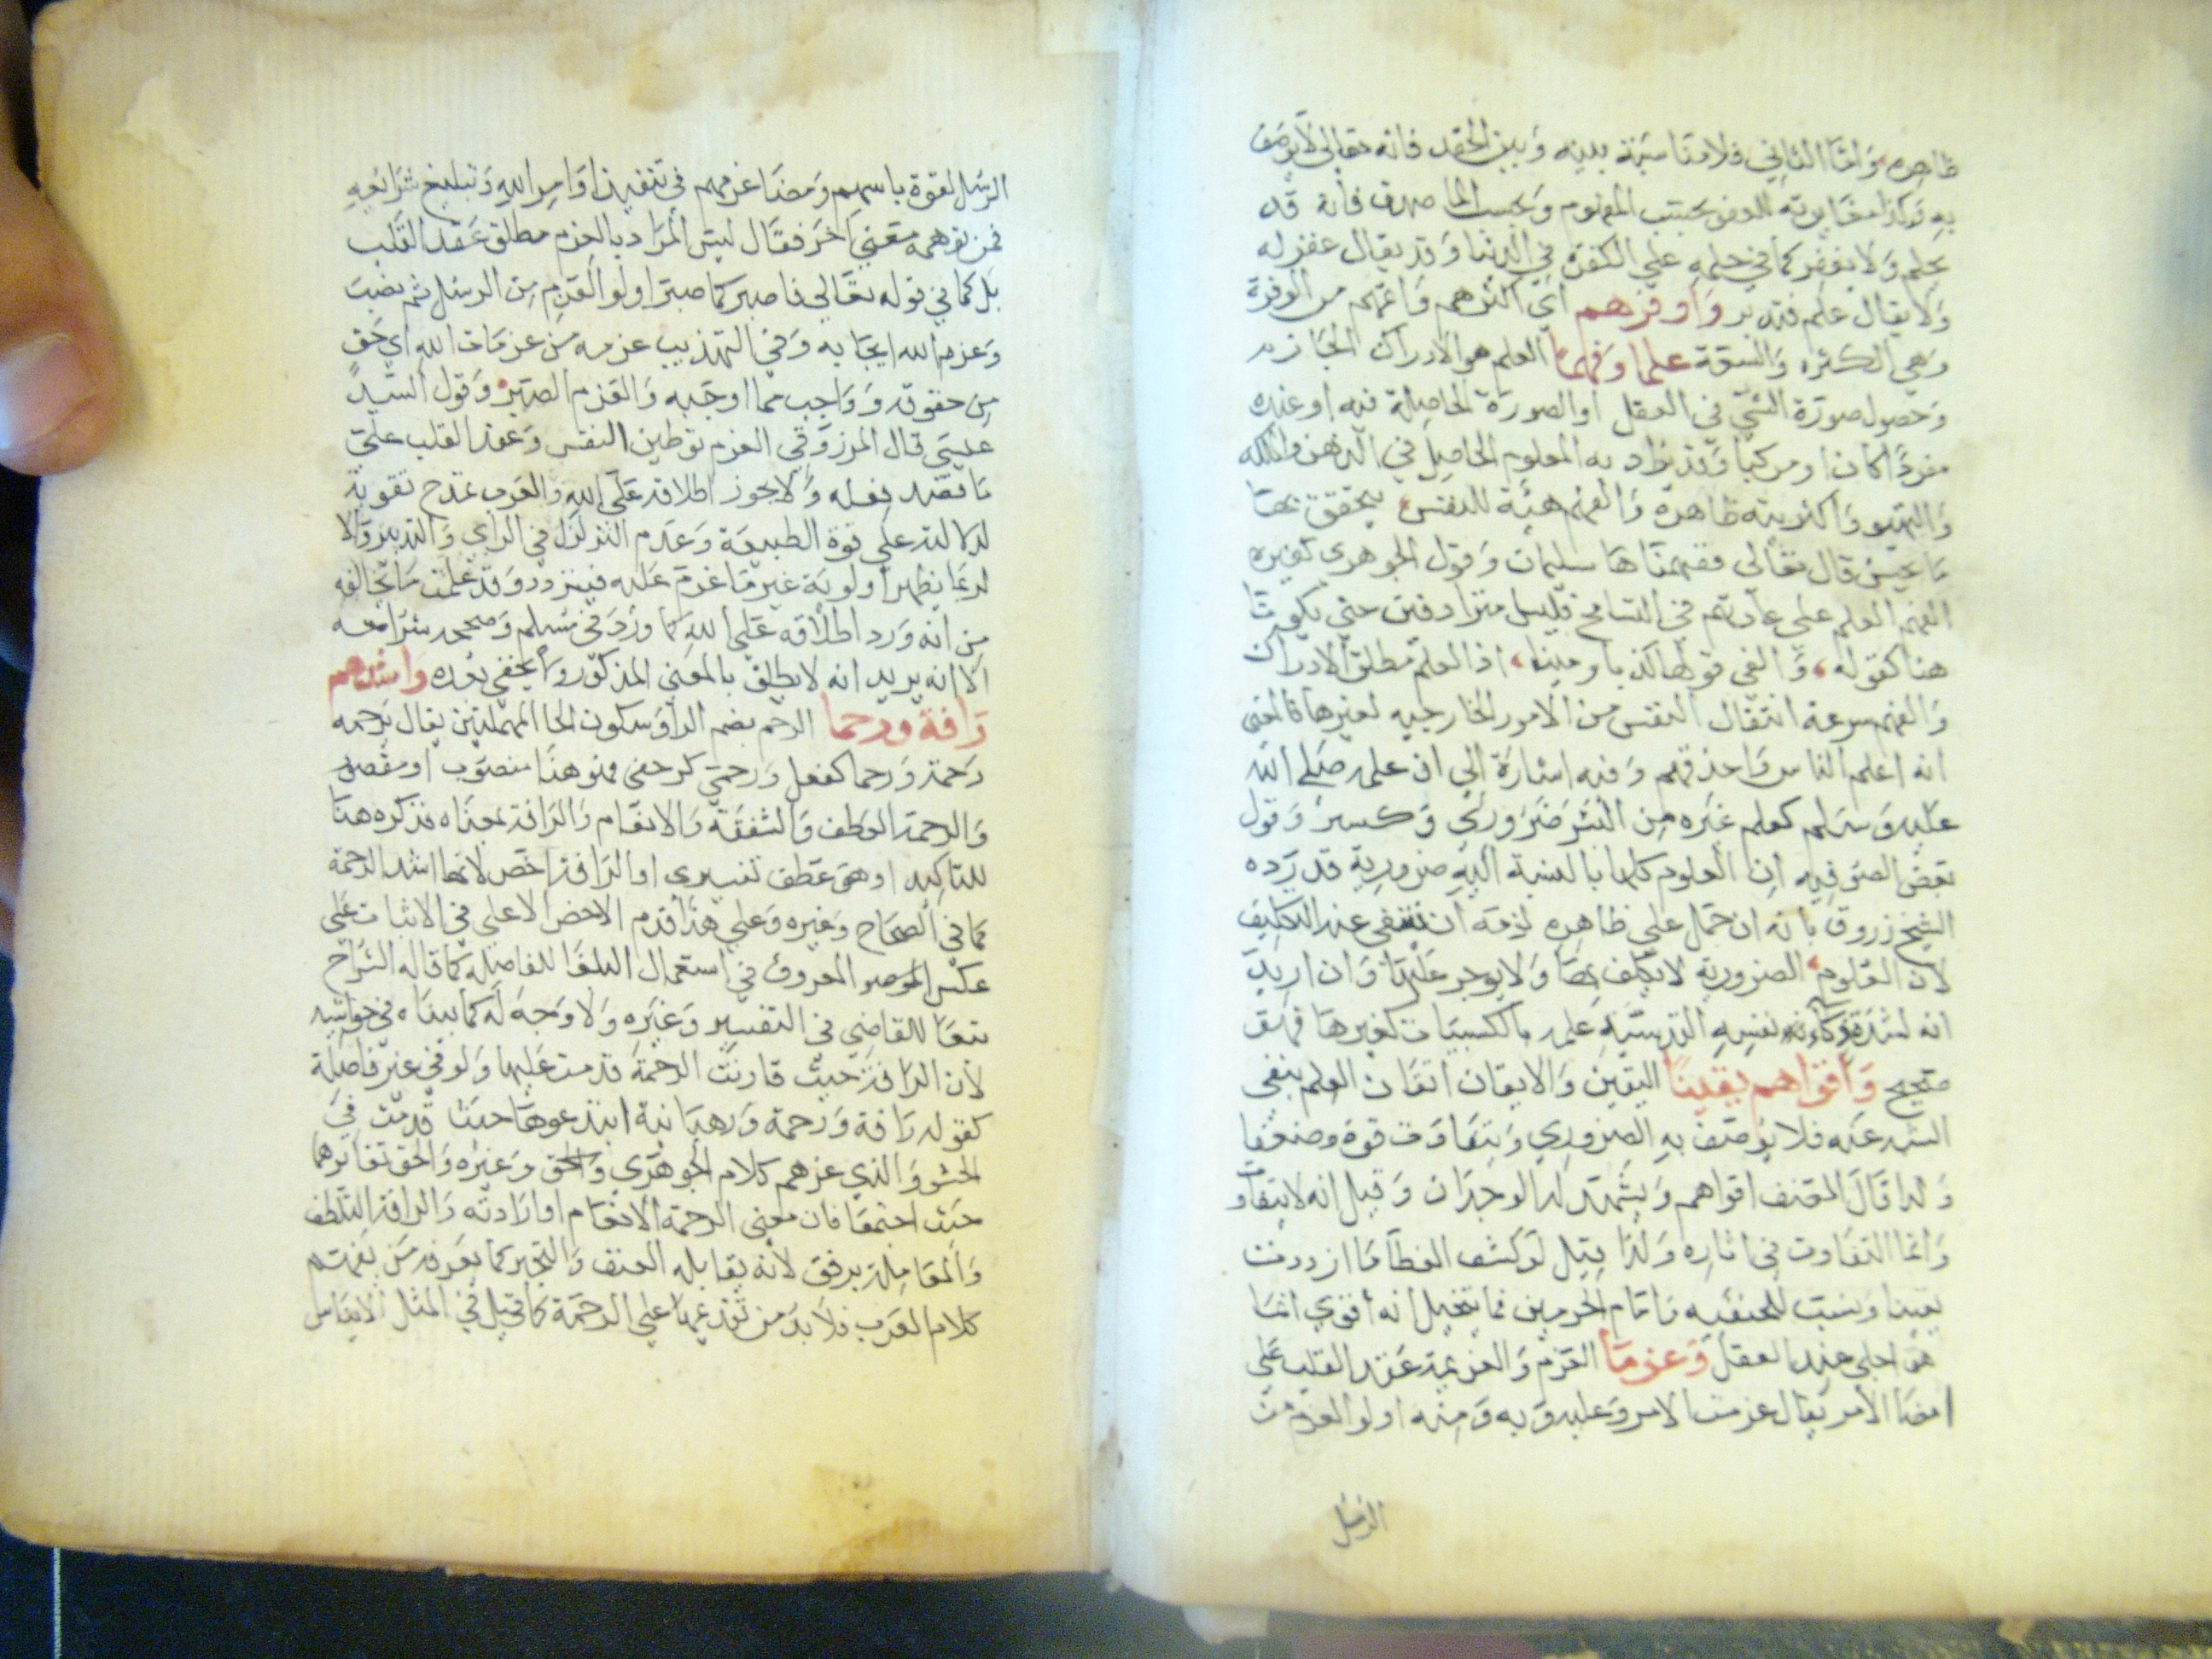 ظاهره وَامّا الثاني فلامناسَبة بينه وَبين الحقد فانه تعالى لا يوصَف
بهِ وَكذا مغايرته للعفو بحسَب المفهوم وَبحسب الماصدق فانه قد
يحلم وَلا يغفر كما في حلمهِ على الكفرة في الدنيا وَقد يقال غفر له
وَلا يقال حلم فتدبر وَاوفرهم اي اكثرهم وَاتمهم من الوفرة
وَهي الكثرة وَالسعَة علما وَفهمًا العلم هو الادراك الجَازم
وَحصول صورَة الشئ في العقل او الصورَة الحاصِلة فيه او عنده
مفردًا كان او مركبا وَقد يرَاد به المعلوم الحاصِل في الذهن والملكه
وَالتهيؤ وَاكثريته ظاهرة وَالفهم هيئَة للنفسِ يتحقق بهَا
مَا يحسُن قال تعَالى ففهمنَاهَا سليمان وَقول الجوهرى كغيره
الفهم العلم على عَادتهم في التسامح فليسَا مترادفين حتى يكونَا
هنا كقوله وَالفى قولها كذبا ومينا، اذ العلم مطلق الادراك
وَالفهم سرعة انتقال النفس من الامور الخارجيه لغيرها فالمعنى
انه اعلم الناس وَاحذقهم وَفيه اشارَة إلى ان علمه صَلى الله
عليه وَسَلم كعلم غيَره مِن البَشَر ضرَوري وَكسبي وَقول
بعض الصوفيه ان العلوم كلها بالنسبة اليهِ ضرورية قد رَده
الشيخ زروق بانه ان حمل على ظاهره لزمَه ان تنتفي عنه التكليف
لان العلوم الضرورية لا يكلف بهَا وَلا يوجر عليها وَان اريد
انه لشدة ذكاء نفسِهِ القدسيَّهِ علمه بالكسبيات كغيرهَا فهو
صحيح وَاقواهم يقينًا اليقين وَالايقان اتقان العلم بنفى
الشبه عنه فلا يوصَف بهِ الضروري وَيتفاوَت قوة وضعفا
وَلذا قالَ المصنف اقواهم وَيشهَد له الوجدَان وَقيل انه لا يتفاوت
وَانما التفَاوت في اثارِه وَلذا قِيل لوَ كشف الغطآ مَا ازددت
يقينا وَينسَب للحنفيه وَامَام الحرمين فما يتخيل انه أقوى انمَا
هوَ اجلى عند العقل وَعزمًا العَزم وَالعزيمة عَقد القلب عَلى
امضا الامر يقال عزمت الامر وَعليه وَبه وَمِنه اولو العزم مَن
الرسُل
الرسُل لقوة باسهم وَمضَا عزمهم في تنفيذ اوَامِر اللهِ وَتبليغ شرَايعِهِ
فمن توهمه معَنى آخَر فقَال ليسَ المرَاد بالعزم مطلق عَقد القَلب
بَل كما في قوله تعَالى فاصبر كما صبرَ اولو العَزمِ مِن الرسُل ثم بضبَ
وَعزم الله ايجَابه وَفي التهذيب عزمه مِن عزمَات الله اي حَق
مِن حقوقه وَوَاجب مما اوجَبه وَالعَزم الصبر وَقول السيد
عيسَى قال المرزوقى العزم توطين النفس وَعقد القلب على
مَا تقصد فعله وَلا يجوز اطلاقه على اللهِ وَالعرب تمدح تقوية
لدلالته على قوة الطبيعَة وَعدم التزلزل في الراي وَالتدبير وَالا
لربمَا يظهر اولويَة غير مَا عَزم عَليه فيتردد وَقد علمت مَا يخالفه
مِن انه وَرد اطلاقه عَلى الله كما ورَد في مسلم وَصححه شرَاحه
الا انه يريد انه لا يطلق بالمعنى المذكور وَلا يخفى بُعده واشدهم
رَافة ورحما الرحم بضم الرآ وَسكون الحا المهملتين يقال رَحمه
رَحمة وَرحما كفعل وَرحمَى كرجعى فهو هنَا منصوب او مقصور
وَالرحمة العَطف وَالشفقَة وَالانعَام وَالرَافة بمعنَاه فذكره هنا
للتاكيد او هوَ عَطف تفسيرى او الرَافة اخَص لانها اشد الرحمة
كما في الصحَاح وَغيره وَعلى هذَا قدم الاخصَ الاعلى في الاثبات عَلى
عكسِ المعروف في استعمال البلغَا للفاصِله كما قاله الشراح
تبعَا للقاضى في التفسير وَغيَره وَلا وَجه لَه كما بينَاه في حواشيه
لان الرافة حيث قارنت الرحمَة قدمت عَليها وَلو في غير فَاصلة
كقوله رَافة وَرحمة وَرهبَانية ابتدعوهَا حيث قدمت في
الحشو وَالذي غرهم كلام الجوهَرى وَغيرُه وَالحق تغايرهما
حَيث اجتمعَا فان معنى الرحمة الانعَام او ارَادته وَالرافة التلطف
وَالمعَاملة برفق لانه يقابله العنف وَالتجبر كما يعَرفه مَن يَفهم
كلام العَرب فلا بد من تقديمها على الرحمَة كما قيل في المثل الايناس